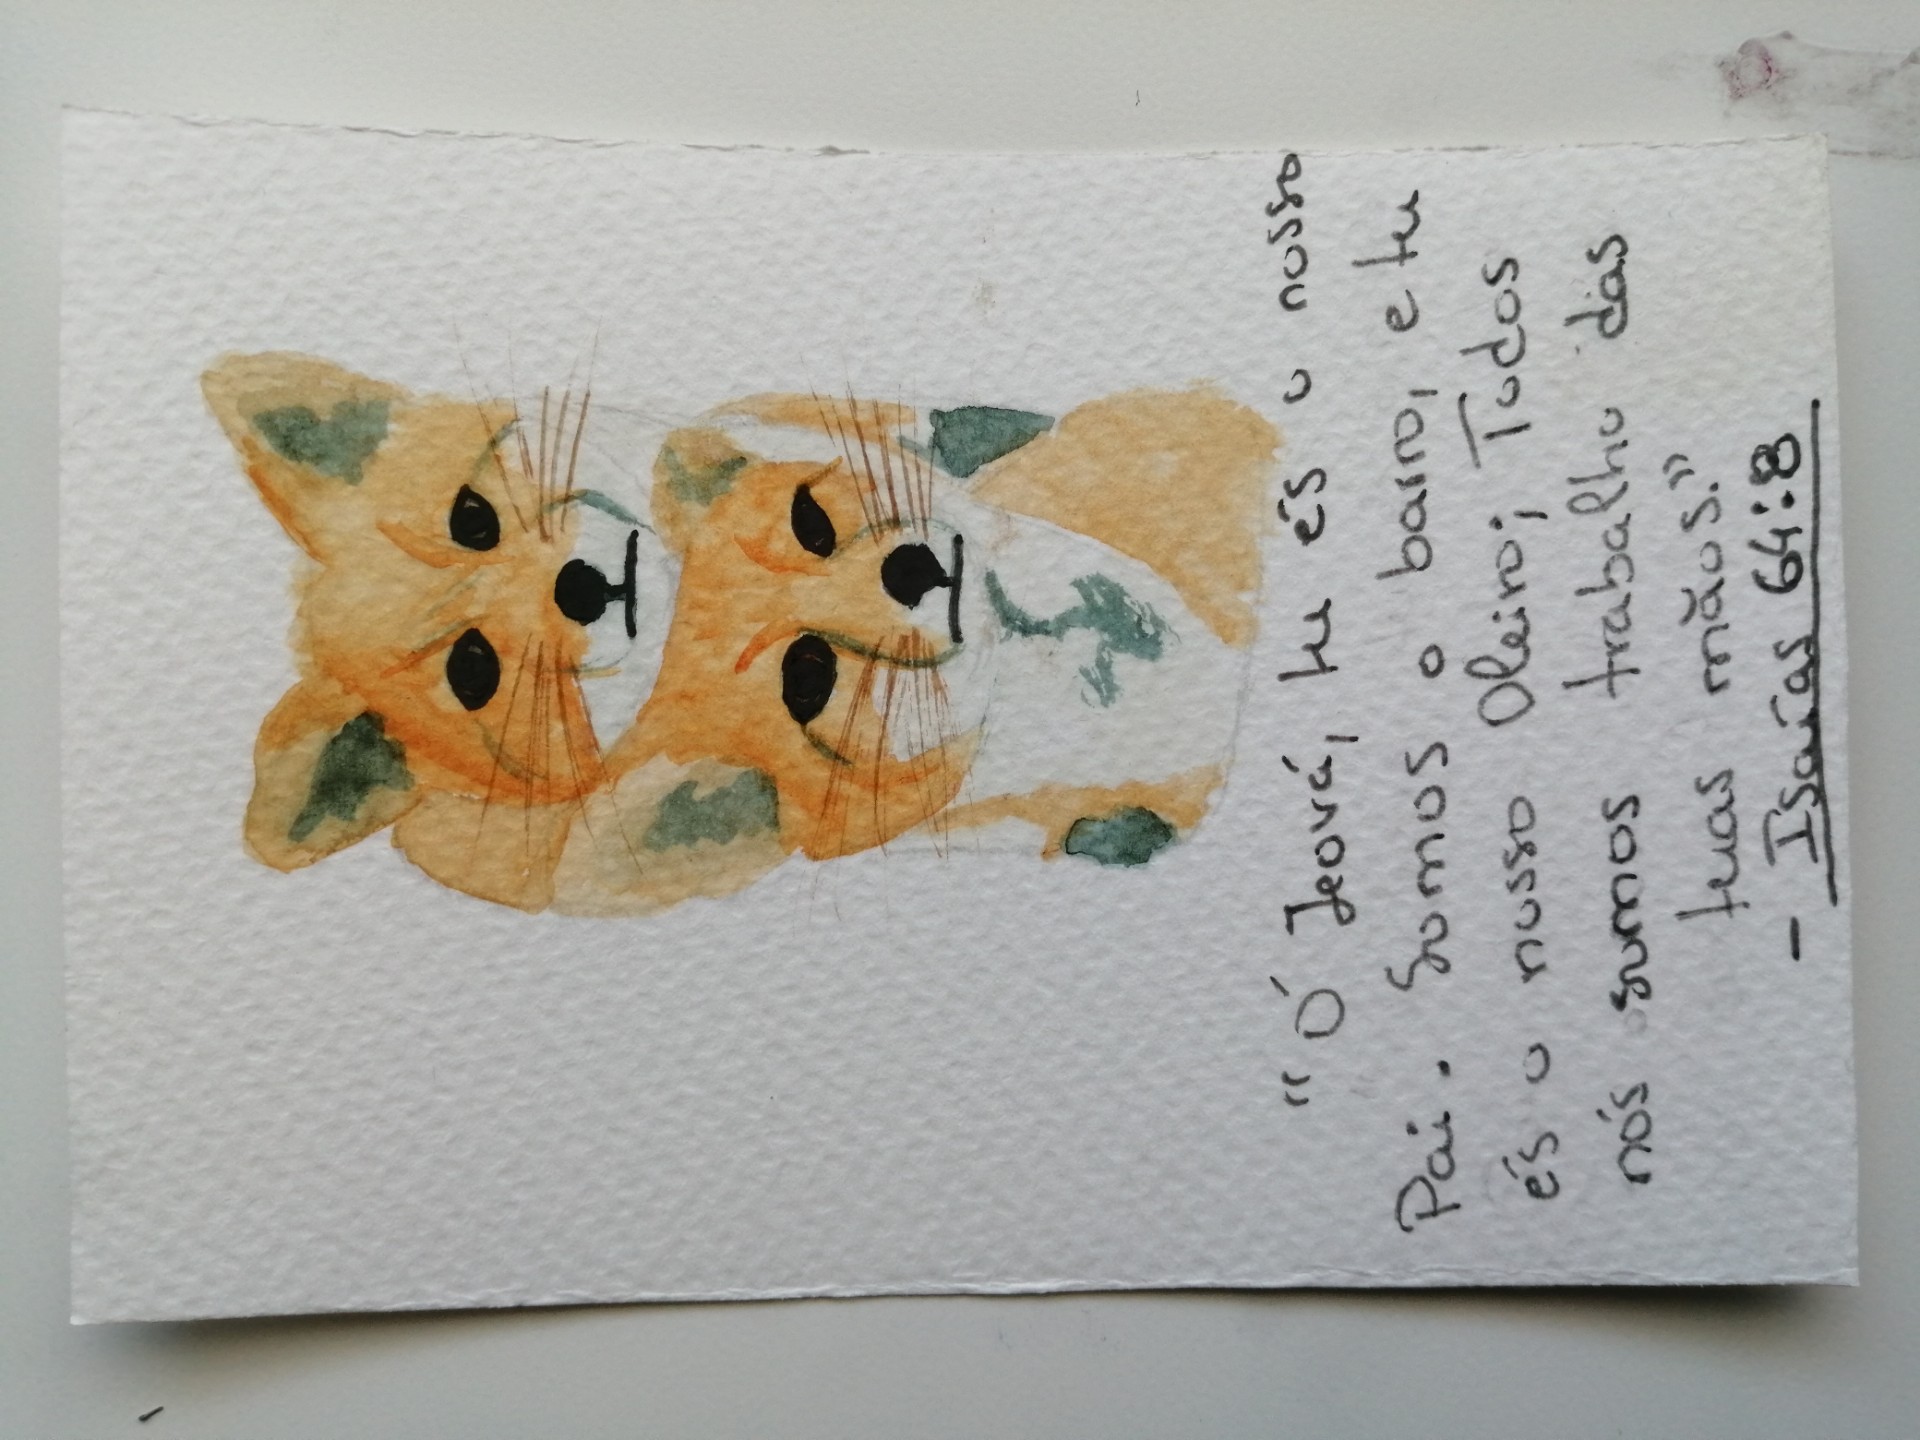 "Ó Jeová, tu és o nosso
Pai. Somos o barro, e tu
és o nosso Oleiro; Todos
nós somos trabalho das
tuas mãos."
- Isaías 64:8